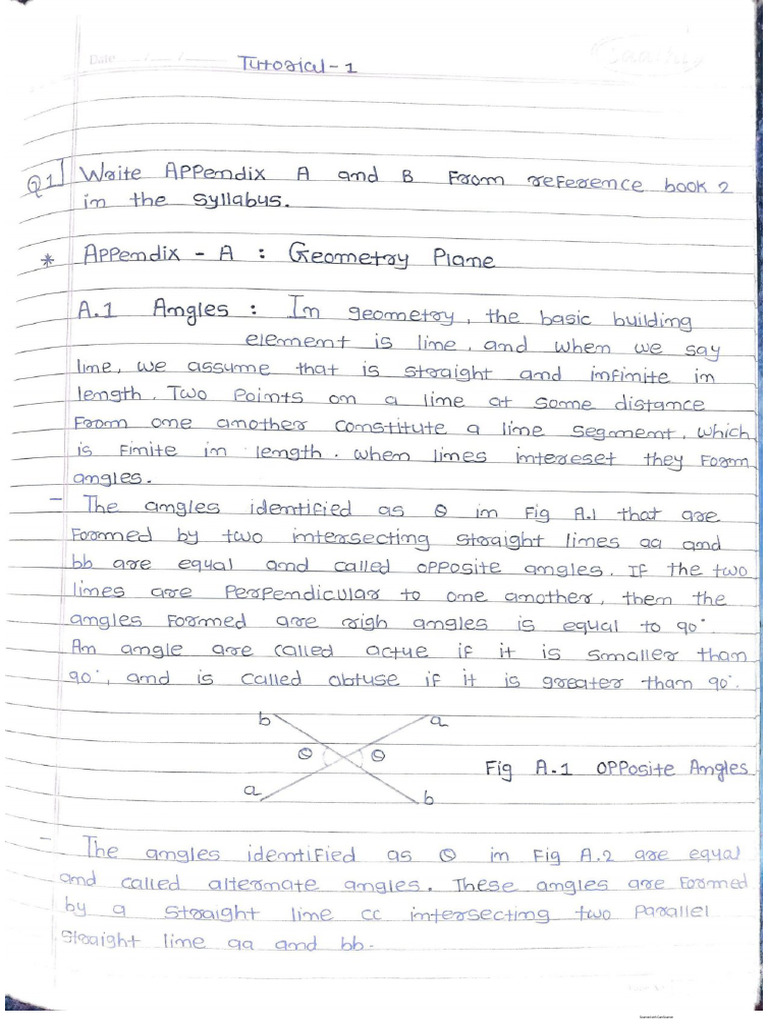 Date ..../..../....
Tutorial-1
Q1] Write Appendix A and B From reference book 2
in the syllabus.
* Appendix - A : Geometry Plane
A.1 Angles : In geometry, the basic building
element is line, and when we say
line, we assume that is straight and infinite in
length. Two Points on a line at some distance
From one another constitute a line segment, which
is Finite in length. when lines intereset they Form
angles.
- The angles identified as θ in Fig A.1 that are
Formed by two intersecting straight lines aa and
bb are equal and called opposite angles. IF the two
lines are Perpendicular to one another, then the
angles Formed are righ angles is equal to 90°
An angle are called actue if it is smaller than
90°, and is called obtuse if it is greater than 90°.
b a
θ θ
Fig A.1 Opposite Angles
a b
- The angles identified as θ in Fig A.2 are equal
and called alternate angles. These angles are Formed
by a straight line cc intersecting two Parallel
straight line aa and bb.